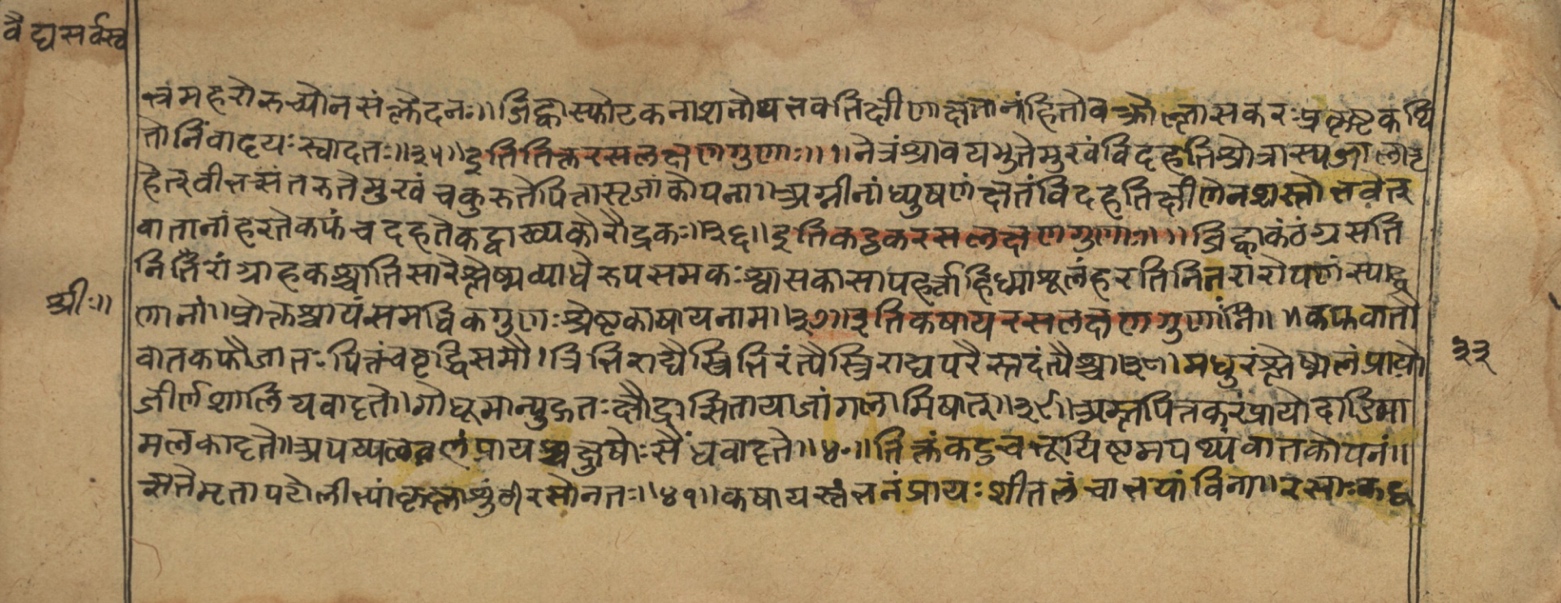 वैद्यसर्वस्व
त्त्रंमहरोरुच्योनसंक्लेदनः॥जिह्वास्फोटकनाशनोथत्तवतिक्षीणाक्षतानांहितोवक्त्रोल्लासकरःप्रकृष्टकथि
तोनिंवादयःस्वादतः॥३५॥इतितिक्तरसलक्षणगुणाः॥॥नेत्रंश्रावयभुतेमुखंविदहतिश्रोत्रास्य
मुखंचकुरुतेपित्तासृजांकोपना॥अग्नीनांध्युषणंक्षतंविदहतिक्षीणेनशस्तो
वातानांहरतेकफंचदहतेकट्वाख्यकोरौद्रकः॥३६॥इतिकटुकरसलक्षणगुणाः॥॥जिह्वाकंठंग्रसति
नितरांग्राहकश्चातिसारेश्लेष्मव्याधेरुपसमकःश्वासकासापहर्त्ताहिध्माशूलंहरतिनितरारोपणंस्याद्व्र
श्रीः॥
णानां॥प्रोक्तश्चायंसमधिकगुणःश्रेष्टकाषायनाम॥३७॥इतिकषायरसलक्षणगुणांनि॥॥कफवातौ
वातकफौजातःपित्तंचवृद्धिसमौ।त्रित्तिराद्यैस्त्रित्तिरंत्यैस्त्रिराद्यपरैस्तदंत्यैश्च॥३८॥मधुरंश्लेष्मलंप्रायो
३३
जीर्णशालियवादृते॥गोधूमान्मुद्गतःक्षौद्रासितायाजांगलामिषात्॥३९॥अम्लपित्तकरंप्रायोदाडिमा
मलकादृते॥अपथ्यलवलंप्रायश्चक्षुषोःसैंधवादृते॥४०॥तिक्तंकटुचभूयिष्टमपथ्यंवातकोपनं॥
ऋतेमृतापटोलीभ्यांकृष्णाशुंठीरसोनतः॥४१॥कषायस्तंत्तनंप्रायःशीतलंचात्तयांविना॥रसाःकटु